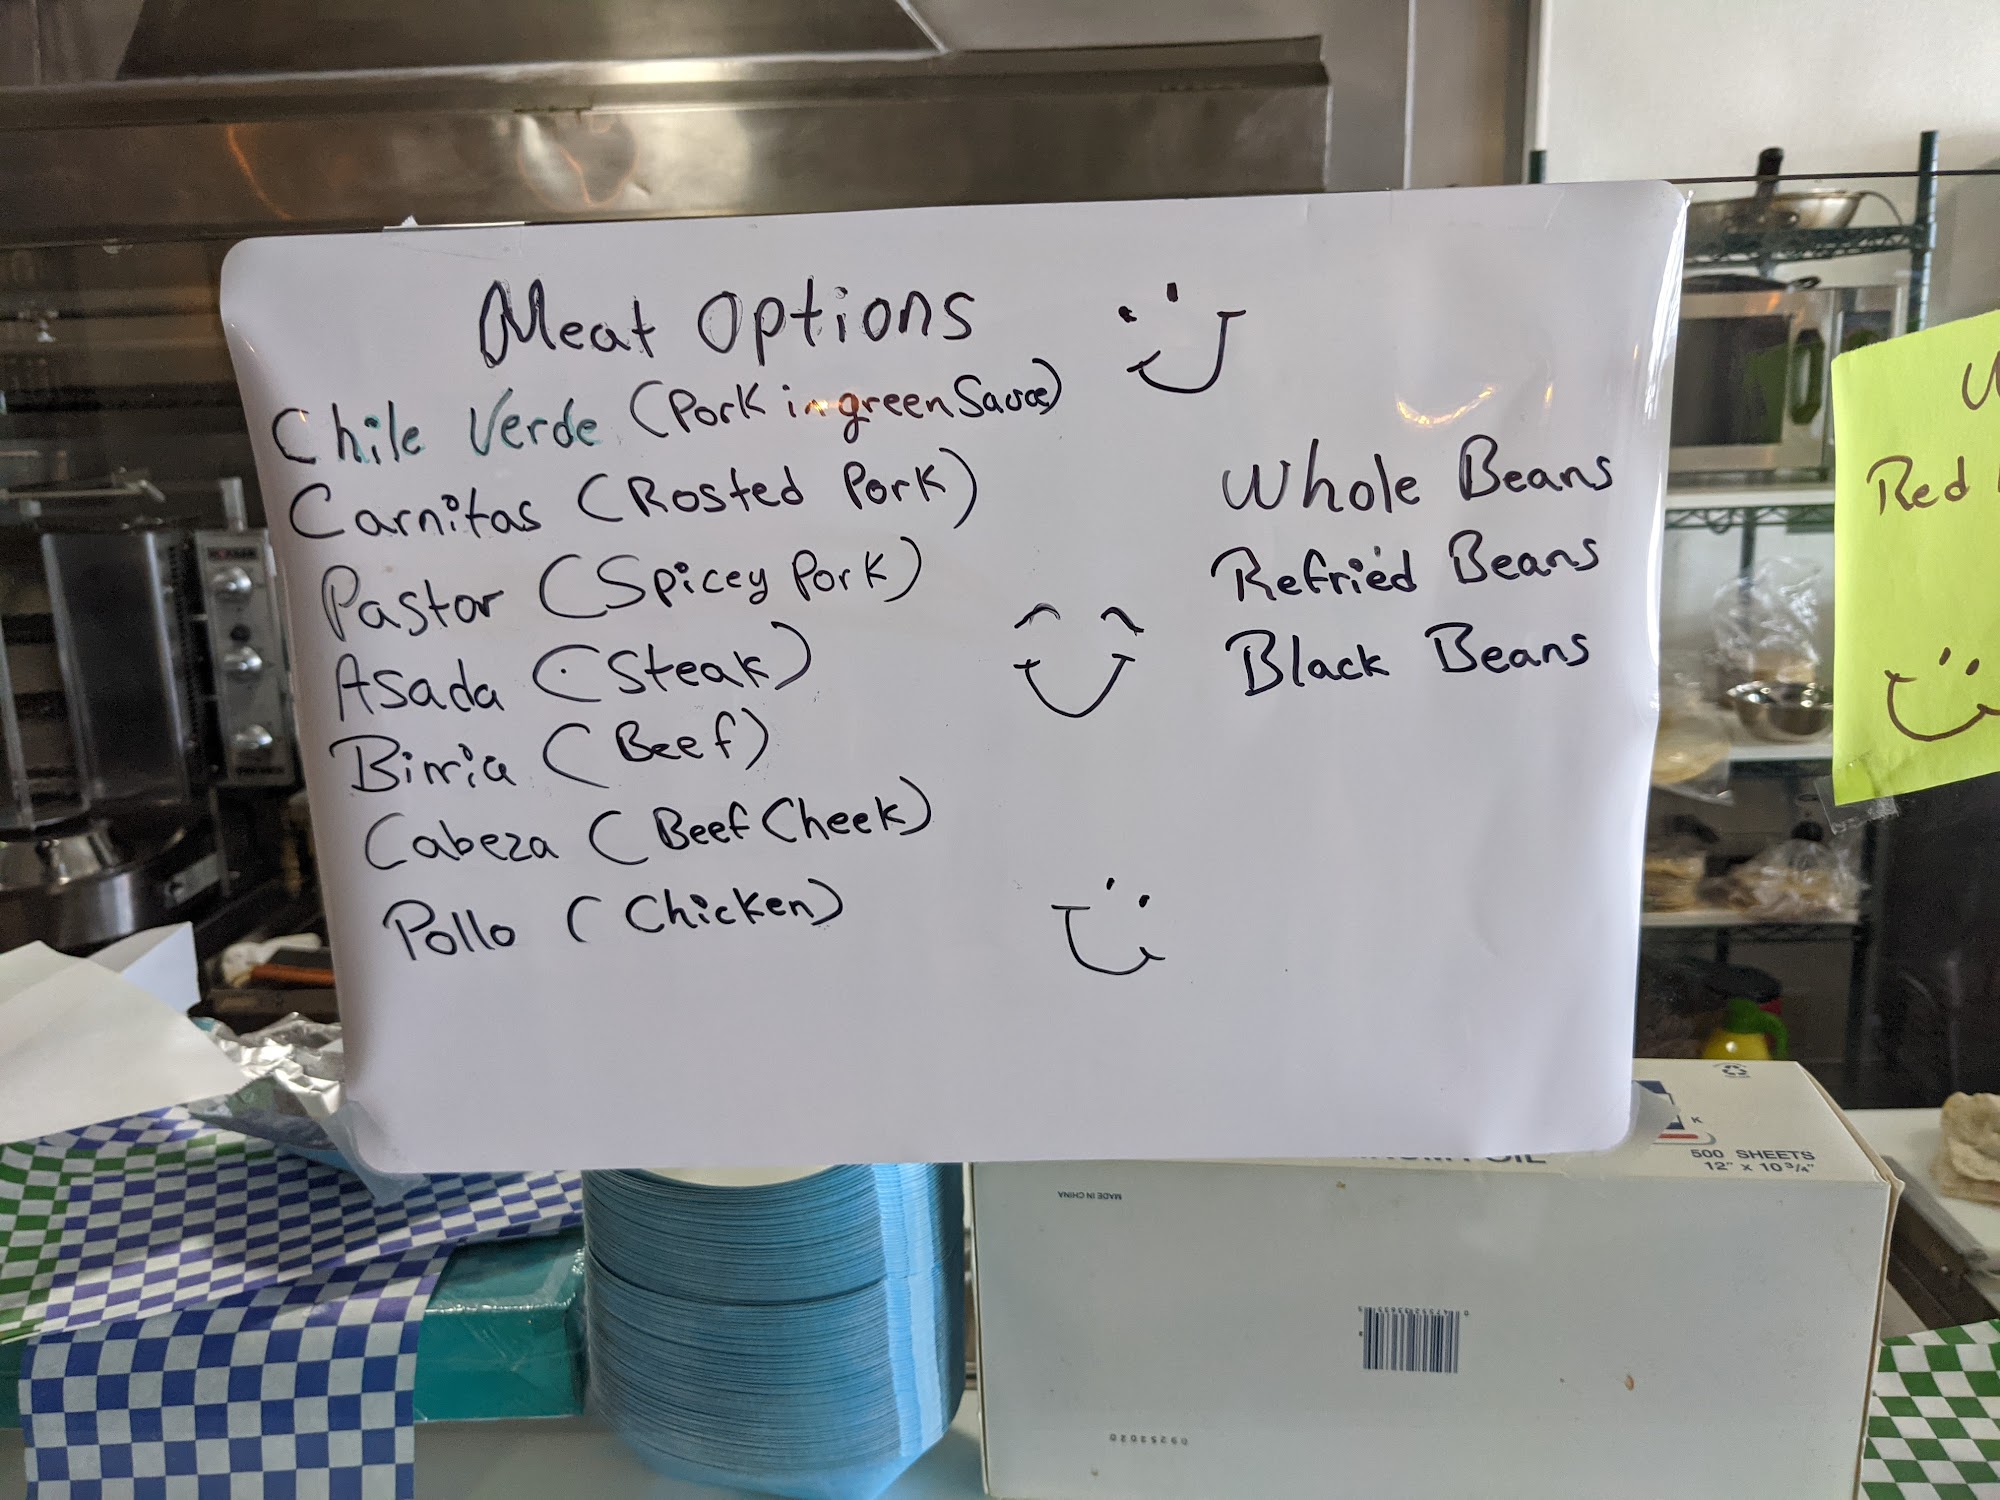 Meat Options
Chile Verde (Pork in green Sauce)
Carnitas (Rosted Pork)
Pastor (Spicey Pork)
Asada (Steak)
Birria (Beef)
Cabeza (Beef Cheek)
Pollo (Chicken)
Whole Beans
Refried Beans
Black Beans
Red
500 SHEETS
12" x 10 3/4"
MADE IN CHINA
09252020